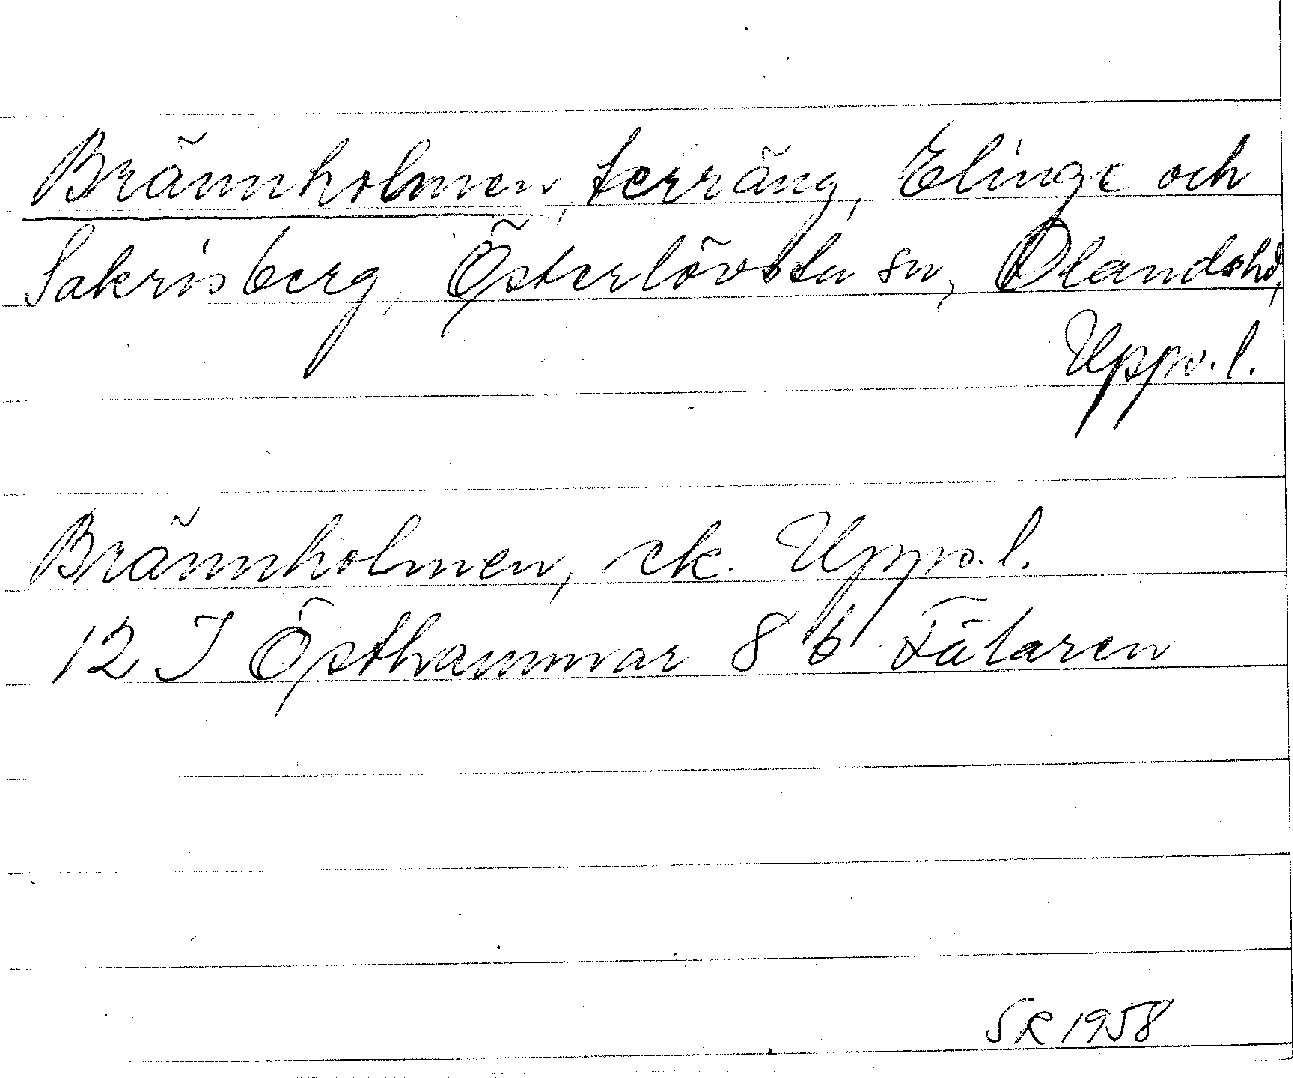 Brännholmen, terräng, Elinge och
Sakrisberg, Österlövsta sn, Olandshd,
Uppv. l.
Brännholmen, ek. Uppv. l.
12 I Östhammar 8 b Fälaren
SR 1958